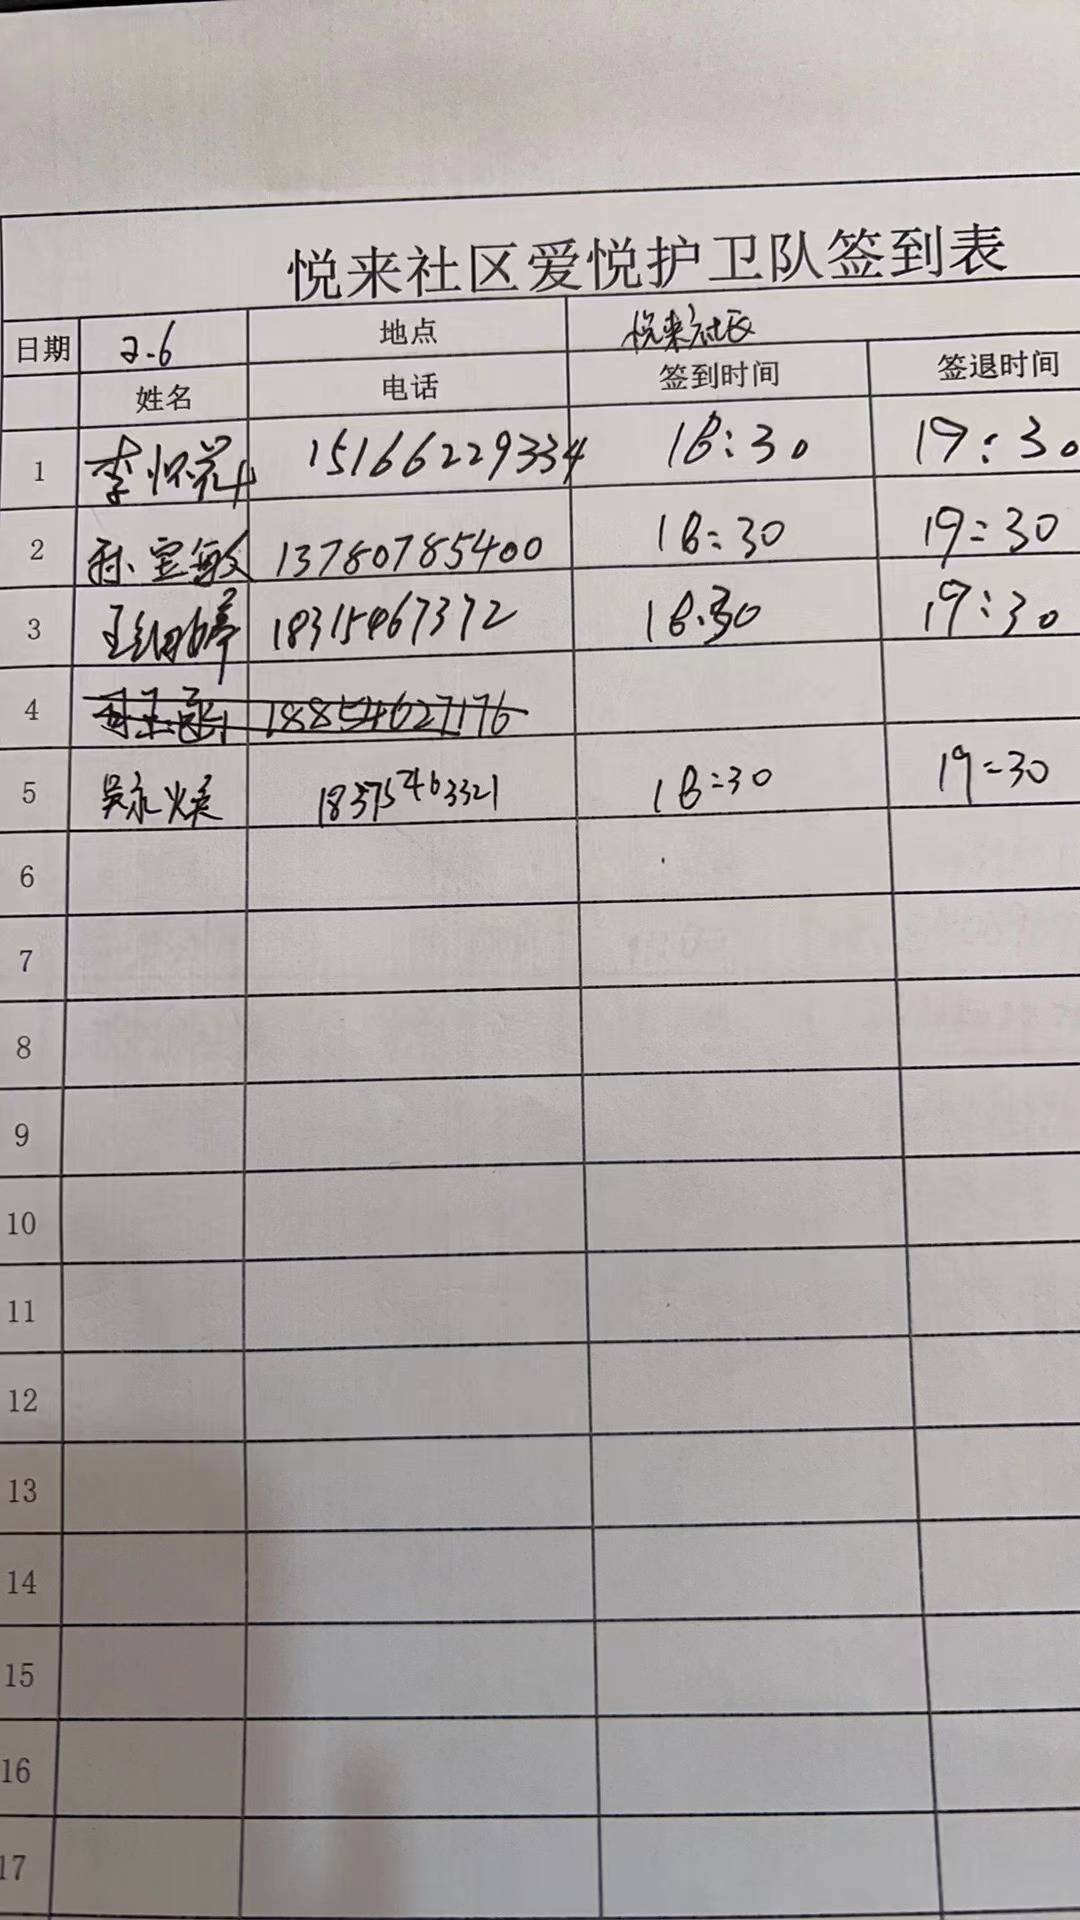 悦来社区爱悦护卫队签到表
日期 2.6 地点 悦来社区
姓名 电话 签到时间 签退时间
1 李怀 15166229334 18:30 19:30
2 孙宝敏 13780785400 18:30 19:30
3 王 18315467372 18:30 19:30
4 18854627176
5 吴永焕 18375463321 18:30 19:30
6
7
8
9
10
11
12
13
14
15
16
17